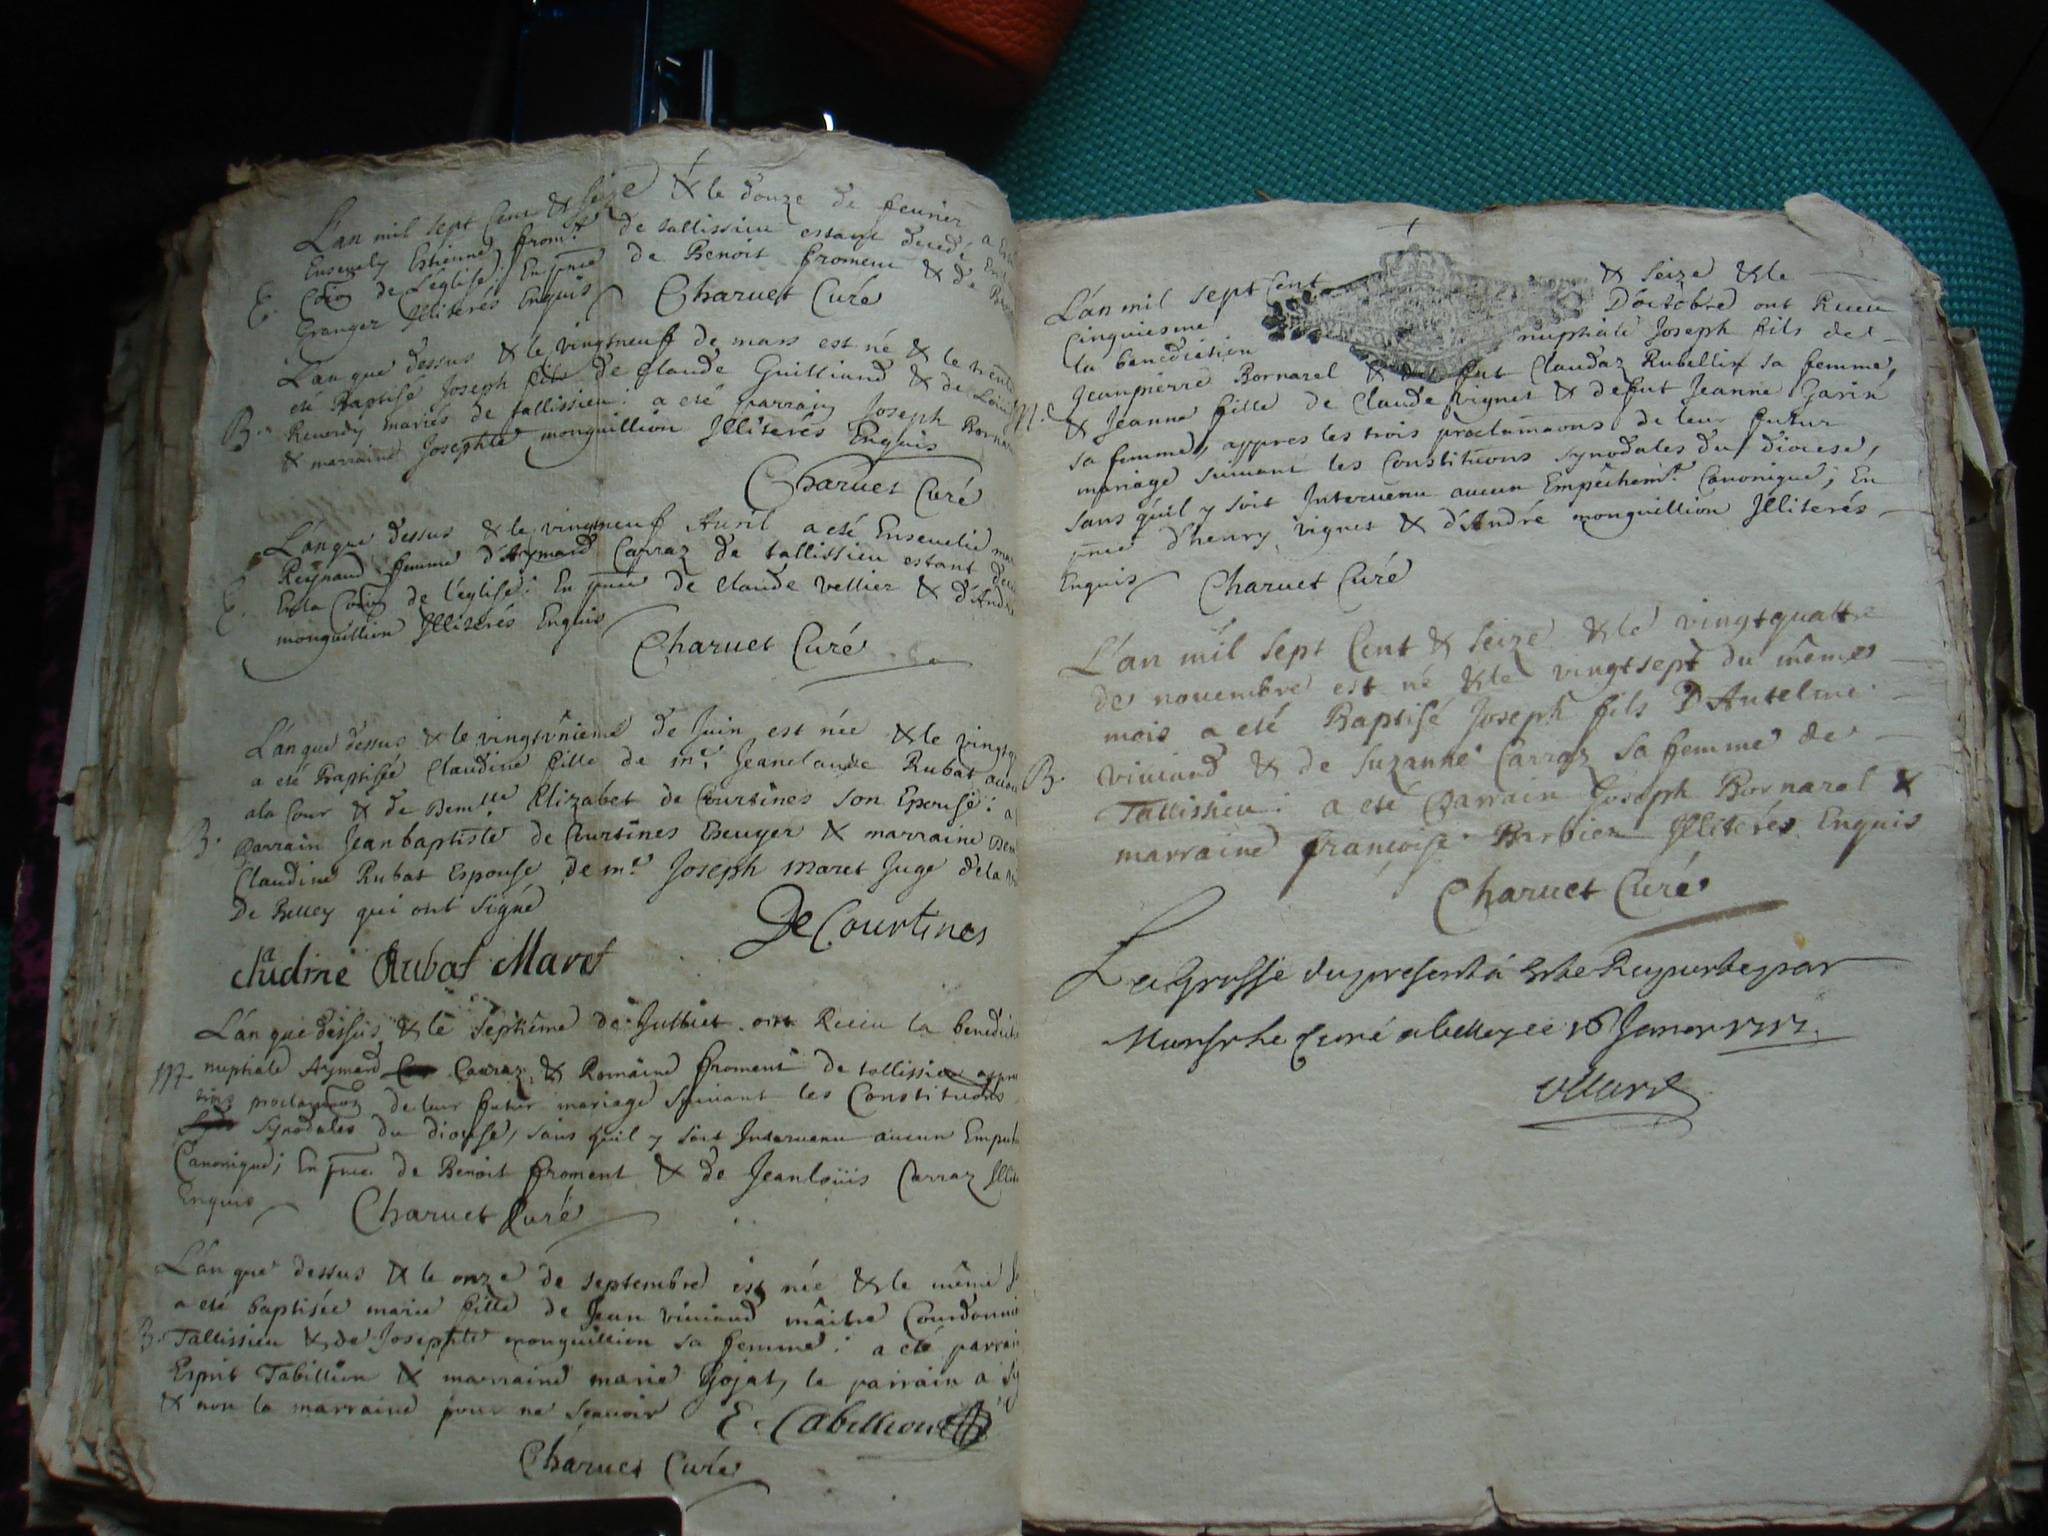 L'an mil sept Cent & seize & le douze de feurier a esté
Enseuely Estienne from.t de tallissieu estant decedé En la
E. Coion de L'eglise; En pnce de Benoit froment & de
Granger Jlliterés Enquis Charuet Curé
L'an que dessus & le vingtneuf de mars est né & le trente
eté Baptisé Joseph fils de Claude Guilliand & de Louise
B. Reuerdy mariés de tallissieu: a eté parrain Joseph Bornarel
& marraine Josephte monguillion Jlliterés Enquis
Charuet Curé
L'an que dessus & le vingtneuf Auril a eté Enseuelie
Reynaud femme d'Aymard Carraz de tallissieu estant
E. En la Coion de l'église: En pnce de Claude Vellier & d'André
monguillion Jlliterés Enquis
Charuet Curé
L'an que dessus & le vingtvnieme de Juin est née & le
a eté Baptisée Claudine fille de mr. Jeanclaude Rubat
ala Cour & de Demlle Elizabet de Courtines son Epouse: a
B. parrain Jeanbaptiste de Courtines Escuyer & marraine
Claudine Rubat Espouse de mr. Joseph Maret Juge dela
De Belley qui ont signé
De Courtines
Claudine Rubat Maret
L'an que dessus, & le septiême de Julliet ont Receu la
M. nuptiale Aymard Carraz & Romaine froment de tallissieu
trois proclamaons de leur futur mariage suiuant les Constituons
synodales du diocese, sans quil y soit Interuenu aucun
Canonique; En pnce de Benoit froment & de Jeanloüis Carraz
Enquis Charuet Curé
L'an que dessus & le onze de septembre est née & le même
a eté baptisée marie fille de Jean viuiand maitre Courdonnier
B. Tallissieu & de Josephte monguillion sa femme: a eté parrain
Esprit Tabillion & marraine marie Gojat, le parrain a
& non la marraine pour ne sçauoir E. Tabillion
Charuet Curé
L'an mil sept Cent & seize & le
Cinquiesme D'octobre ont Receu
la benediction nuptiale Joseph fils de
Jeanpierre Bornarel & fut Claudaz Rubellin sa femme,
M. & Jeanne fille de Claude vignet & defut Jeanne Garin
sa femme, appres les trois proclamaons de leur futur
mariage suiuant les Constituons synodales du diocese,
sans quil y soit Interuenu aucun Empêchemt. Canonique; En
pnce d'henry vignet & d'André monguillion Jlliterés
Enquis Charuet Curé
L'an mil sept Cent & seize & le vingtquattre
de nouembre est né & le vingtsept du même
mois a eté Baptisé Joseph fils D'Antelme
B. viuiand & de Suzanne Carraz sa femme de
Tallissieu: a eté parrain Joseph Bornarel &
marraine françoise Barbier Jlliterés Enquis
Charuet Curé
La Grosse du present à par
Curé a belley ce 16 Januier 1717.